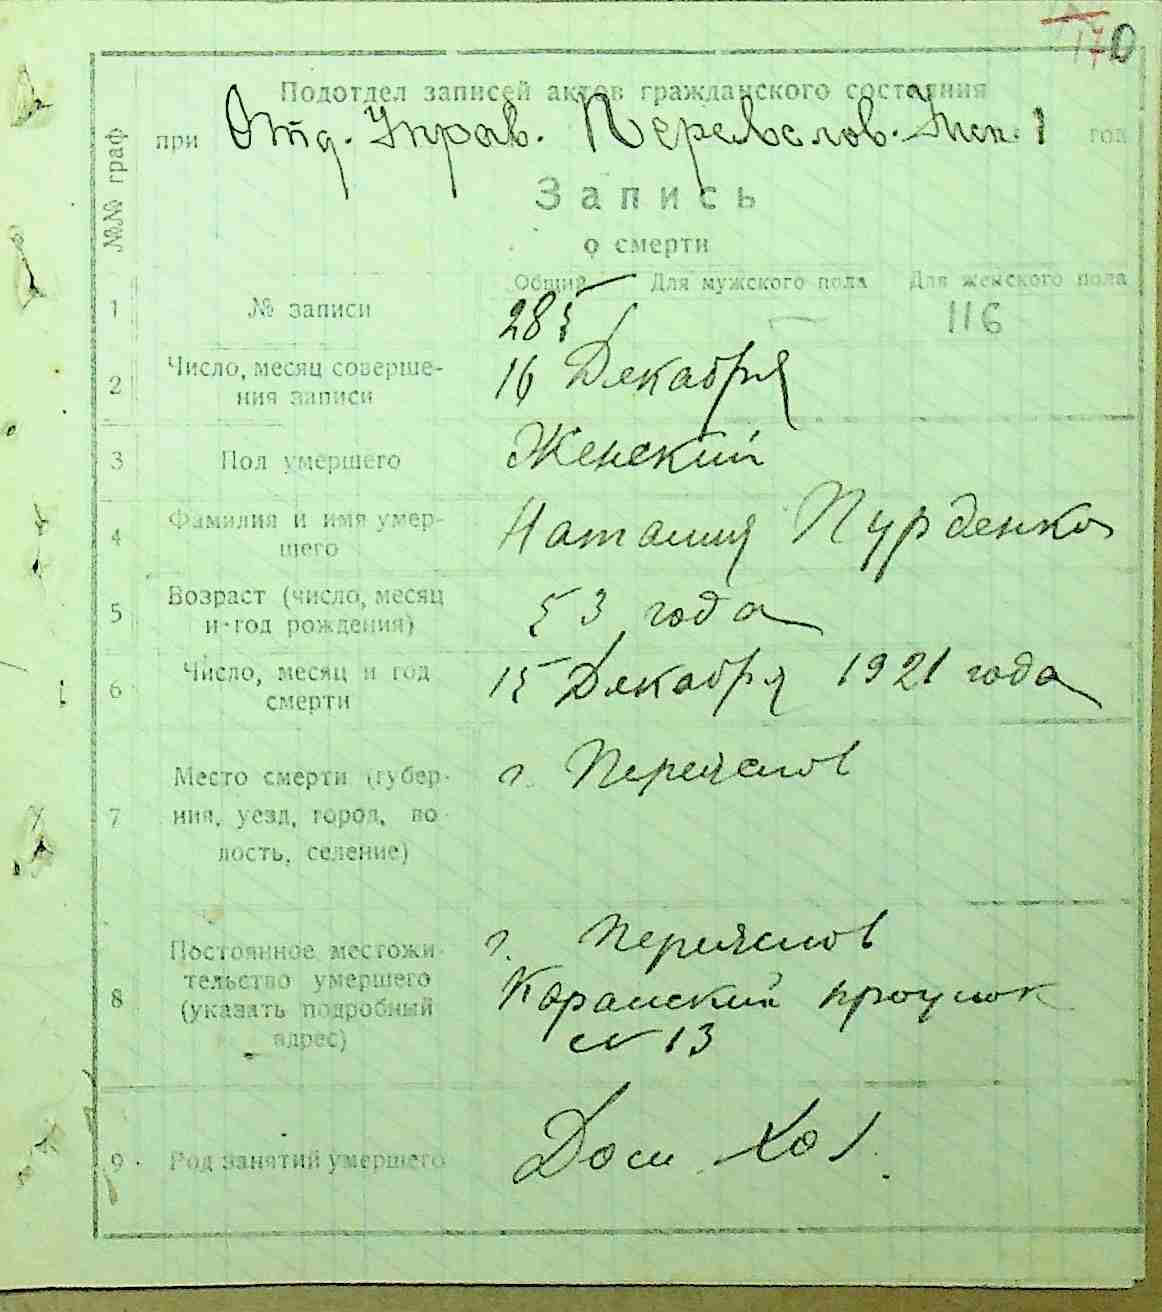 170
Подотдел записей актов гражданского состояния
при Отд. Управ. Переяслов. Исп. 1 год
№№ граф
Запись
о смерти
Общий Для мужского пола Для женского пола
1 № записи 285 — 116
2 Число, месяц соверше-
ния записи 16 Декабря
3 Пол умершего Женский
4 Фамилия и имя умер-
шего Наталия Пурденко
5 Возраст (число, месяц
и год рождения) 53 года
6 Число, месяц и год
смерти 15 Декабря 1921 года
7 Место смерти (губер-
ния, уезд, город, во-
лость, селение) г. Переяслов
8 Постоянное местожи-
тельство умершего
(указать подробный
адрес) г. Переяслов
проулок
№ 13
9 Род занятий умершего Дом. Хоз.